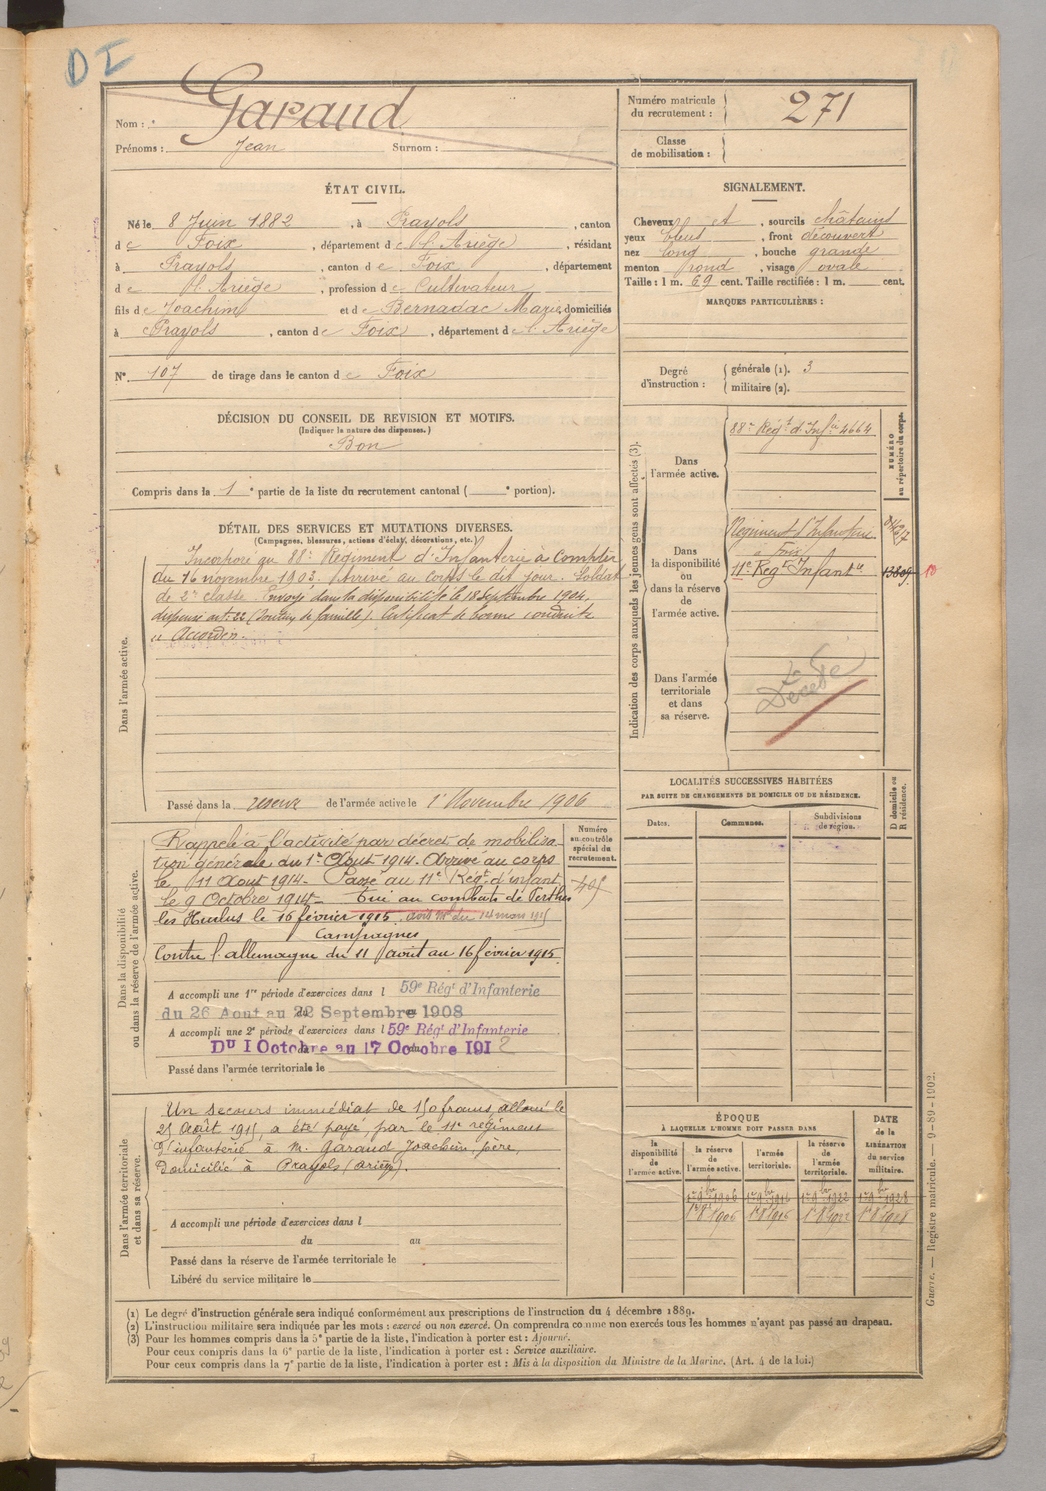 DI
Nom : Garaud
Prénoms : Jean Surnom :
Numéro matricule du recrutement : 271
Classe de mobilisation :
ÉTAT CIVIL.
Né le 8 Juin 1882, à Prayols, canton
de Foix, département de l'Ariège, résidant
à Prayols, canton de Foix, département
de l'Ariège, profession de Cultivateur
fils de Joachim et de Bernadac Marie, domiciliés
à Prayols, canton de Foix, département de l'Ariège
N° 107 de tirage dans le canton de Foix
SIGNALEMENT.
Cheveux et, sourcils châtains
yeux bleus, front découvert
nez long, bouche grande
menton rond, visage ovale
Taille : 1 m. 69 cent. Taille rectifiée : 1 m. cent.
MARQUES PARTICULIÈRES :
Degré d'instruction : générale (1). 3
militaire (2).
DÉCISION DU CONSEIL DE REVISION ET MOTIFS.
(Indiquer la nature des dispenses.)
Bon
Compris dans la 1e partie de la liste du recrutement cantonal ( e portion).
DÉTAIL DES SERVICES ET MUTATIONS DIVERSES.
(Campagnes, blessures, actions d'éclat, décorations, etc.)
Dans l'armée active.
Incorporé au 88e Régiment d'Infanterie à compter
du 16 novembre 1903. Arrivé au corps le dit jour. Soldat
de 2e classe. Envoyé dans la disponibilité le 18 Septembre 1904,
dispensé art. 22 (Soutien de famille). Certificat de bonne conduite
"Accordé".
Passé dans la réserve de l'armée active le 1er Novembre 1906
Indication des corps auxquels les jeunes gens sont affectés (3).
NUMÉRO au répertoire du corps.
Dans l'armée active.
88e Régt d'Infie 4664
Dans la disponibilité ou dans la réserve de l'armée active.
Régiment d'Infanterie
à Foix
11e Regt Infantie 13809 10
Dans l'armée territoriale et dans sa réserve.
Décédé
Dans la disponibilité ou dans la réserve de l'armée active.
Numéro au contrôle spécial du recrutement.
Rappelé à l'activité par décret de mobilisa-
tion générale du 1er Août 1914. Arrivé au corps
le 11 Août 1914. Passé au 11e Régt d'infant
le 9 Octobre 1914. Tué au combat de Perthes
les Hurlus le 16 février 1915 avis Mel du 14 mars 1915
Campagnes
Contre l'allemagne du 11 août au 16 février 1915.
A accompli une 1re période d'exercices dans l 59e Régt d'Infanterie
du 26 Aout au 22 Septembre 1908
A accompli une 2e période d'exercices dans l 59e Régt d'Infanterie
Du 1 Octobre au 17 Octobre 1912
Passé dans l'armée territoriale le
LOCALITÉS SUCCESSIVES HABITÉES
PAR SUITE DE CHANGEMENTS DE DOMICILE OU DE RÉSIDENCE.
Dates. Communes. Subdivisions de région. D domicile ou R résidence.
Dans l'armée territoriale et dans sa réserve.
Un secours immédiat de 150 francs, alloué le
25 Août 1915, a été payé, par le 11e régiment
d'infanterie à M. Garaud Joachim, père,
domicilié à Prayols (ariège).
A accompli une période d'exercices dans l
du au
Passé dans la réserve de l'armée territoriale le
Libéré du service militaire le
ÉPOQUE
À LAQUELLE L'HOMME DOIT PASSER DANS
DATE de la LIBÉRATION du service militaire.
la disponibilité de l'armée active. la réserve de l'armée active. l'armée territoriale. la réserve de l'armée territoriale.
(1) Le degré d'instruction générale sera indiqué conformément aux prescriptions de l'instruction du 4 décembre 1889.
(2) L'instruction militaire sera indiquée par les mots : exercé ou non exercé. On comprendra comme non exercés tous les hommes n'ayant pas passé au drapeau.
(3) Pour les hommes compris dans la 5e partie de la liste, l'indication à porter est : Ajourné.
Pour ceux compris dans la 6e partie de la liste, l'indication à porter est : Service auxiliaire.
Pour ceux compris dans la 7e partie de la liste, l'indication à porter est : Mis à la disposition du Ministre de la Marine. (Art. 4 de la loi.)
Guerre. — Registre matricule. — 9-89-1902.